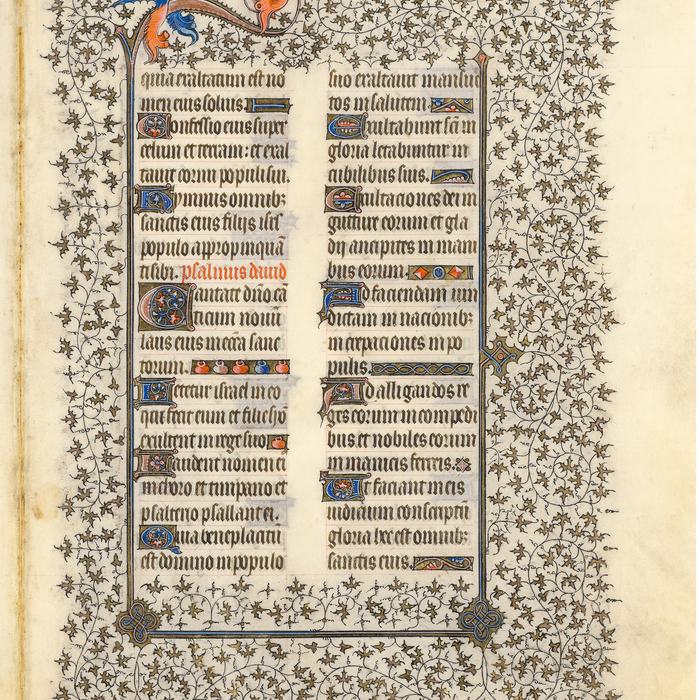 quia exaltatum est no
men eius solius
Confessio eius supe
celum et terram: et exal
tauit cornu populi sui.
Ymnus omnibꝫ
sanctis eius filijs isr̃l
populo appropinquã
ti sibi. psalmus dauid
Cantate dño cã
ticum nouũ
laus eius in ecc̃ia sanc
torum.
Letetur israel in eo
qui fecit eum et filie syõ
exultent in rege suo
Laudent nomen ei
in choro et timpano et
psalterio psallant ei.
Quia beneplacitũ
est domino in populo
suo et exaltauit mansue
tos in salutem
Exultabunt sc̃i in
gloria letabuntur in
cubilibus suis.
Exultaciones dei in
gutture eorum et gla
dij ancipites in mani
bus eorum.
Ad faciendam uin
dictam in nacionibꝫ
increpaciones in po
pulis.
Ad alligandos re
ges eorum in compedi
bus et nobiles eorum
in manicis ferreis.
Ut faciant in eis
iudicium conscriptũ
gloria hec est omnibꝫ
sanctis eius.